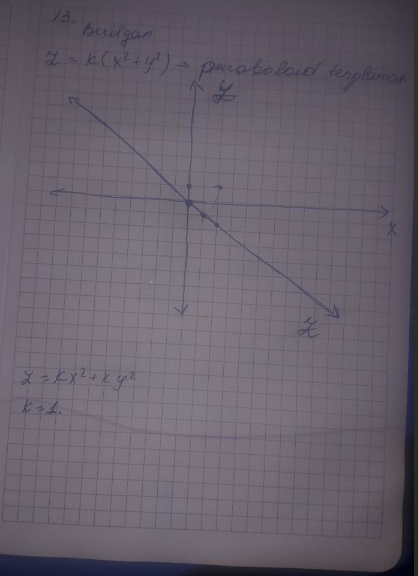 13.
Berilgan
Z = k(x²+y²) → paraboloid tenglamasi
y
x
Z
Z = kx²+ky²
k=1.